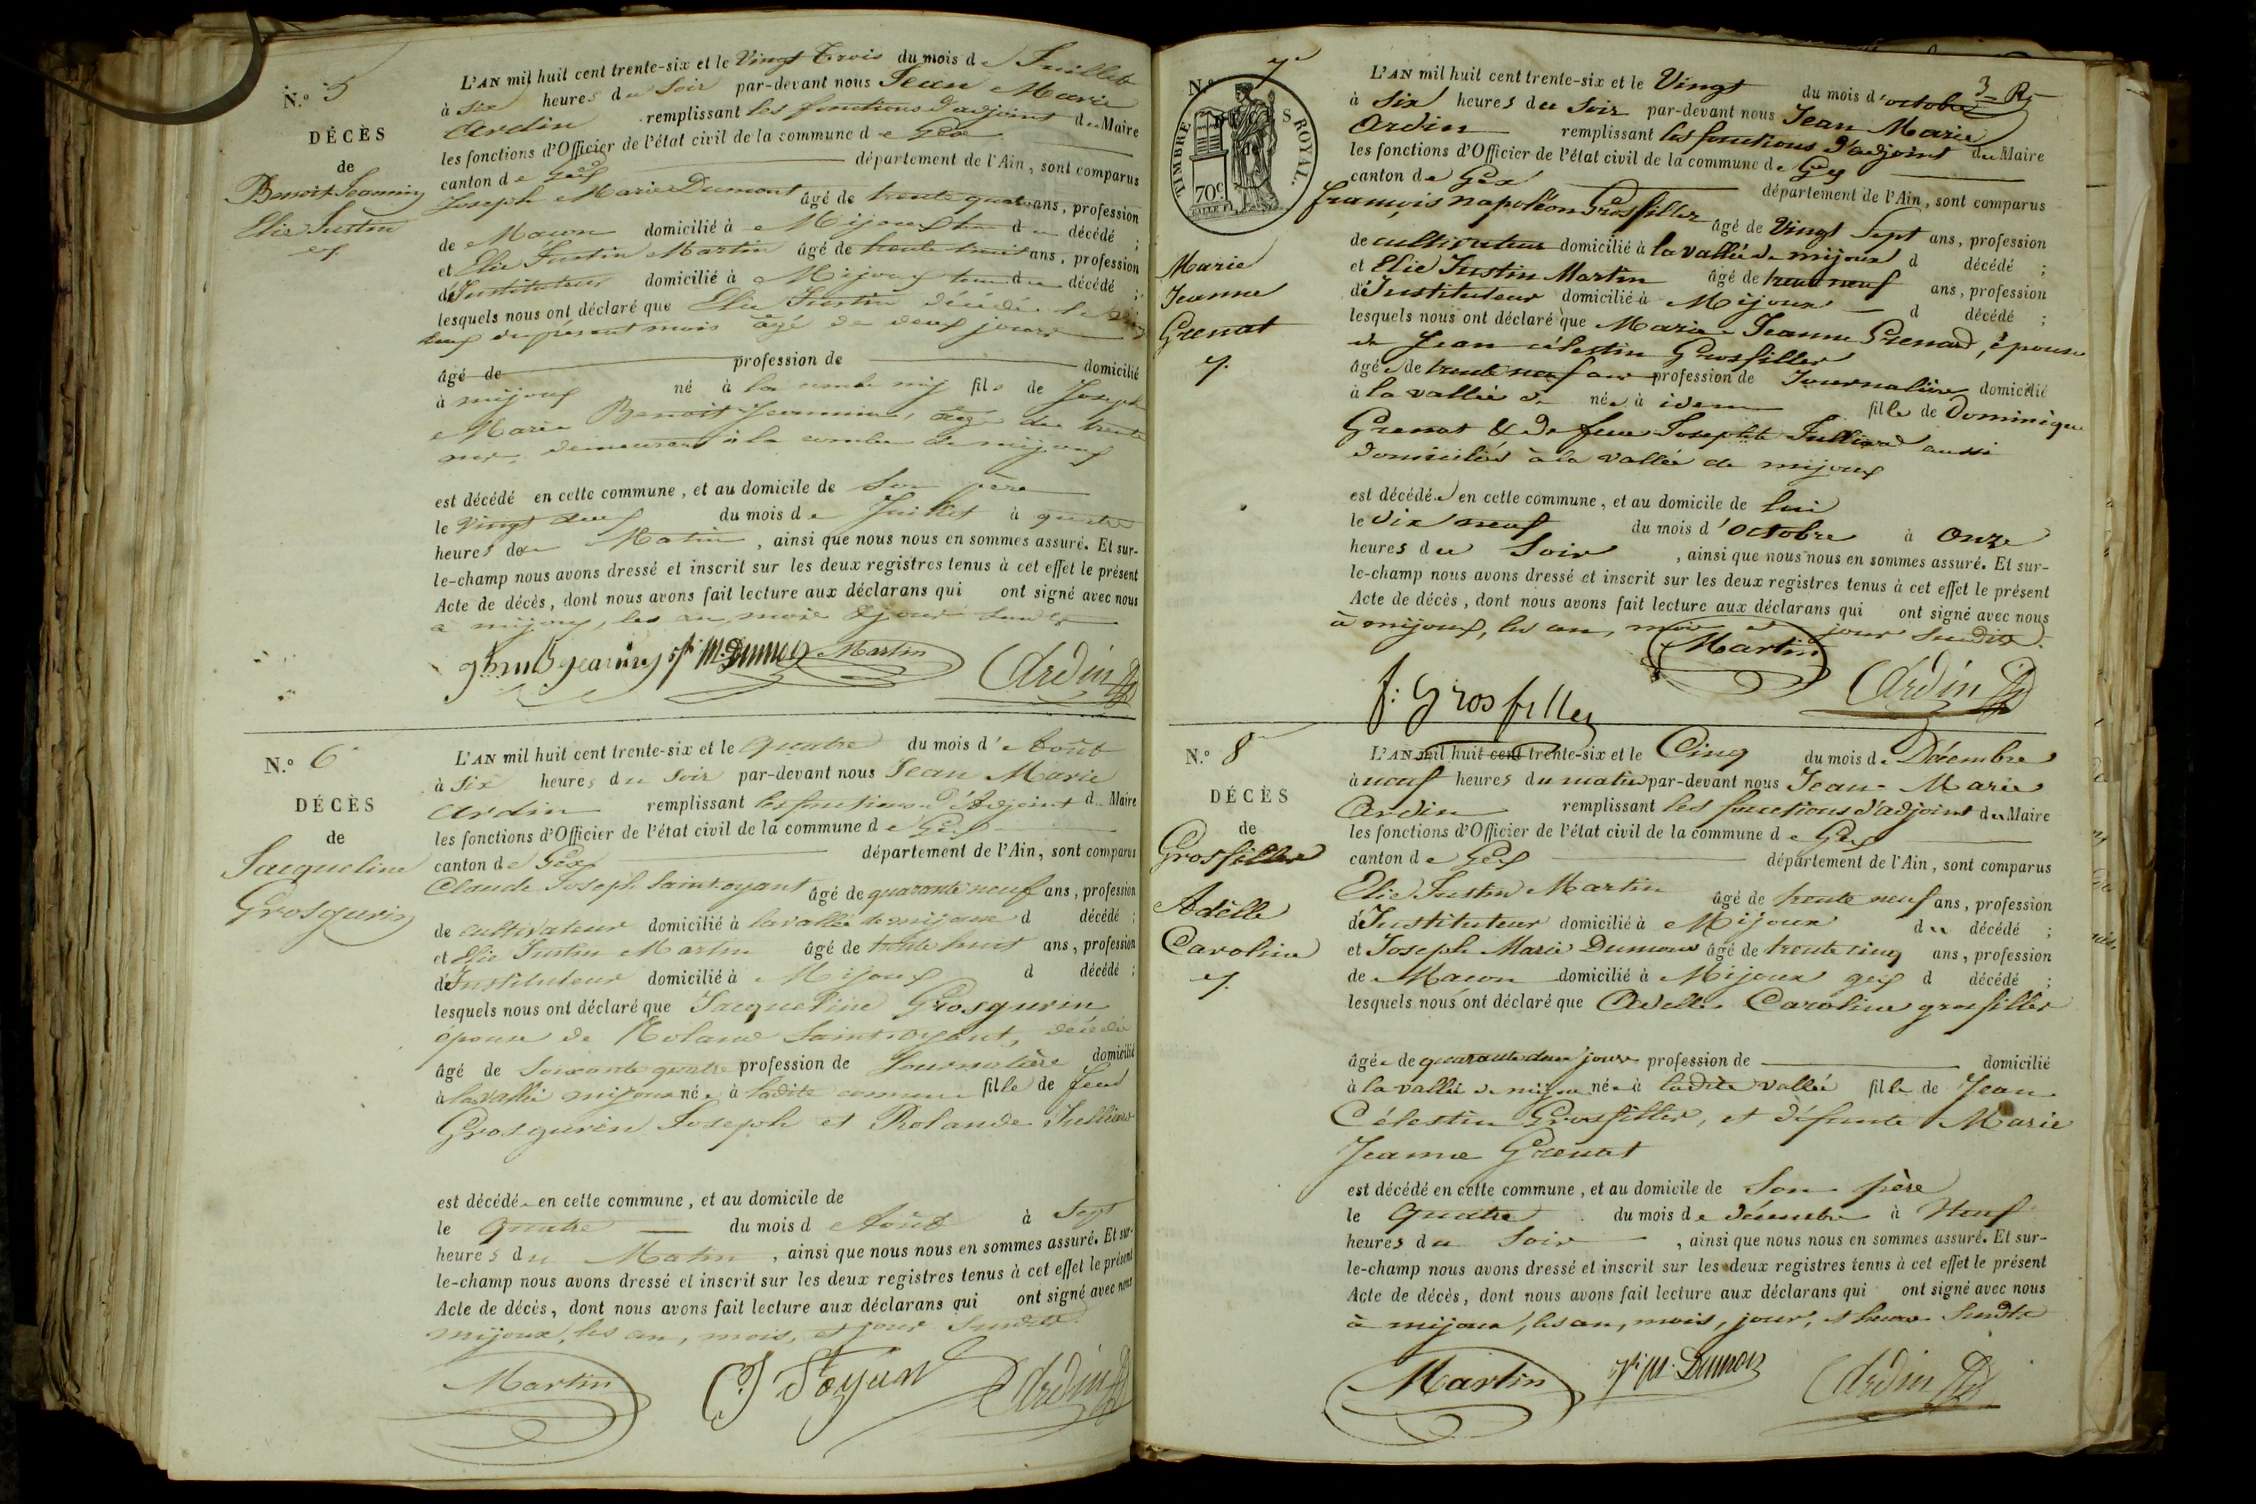 N.° 5
DÉCÈS
de
Benoit-Jeannin
Elie Justin
L'AN mil huit cent trente-six et le Vingt Trois du mois de Juillet
à Six heures du Soir par-devant nous Jean Marie
Ardin remplissant les fonctions d'adjoint du Maire
les fonctions d'Officier de l'état civil de la commune de Gex
canton de Gex département de l'Ain, sont comparus
Joseph Marie Dumont âgé de trente quatre ans, profession
de Maçon domicilié à Mijoux du décédé ;
et Elie Justin Martin âgé de trente huit ans, profession
d'Instituteur domicilié à Mijoux du décédé ;
lesquels nous ont déclaré que Elie Justin décédé le
deux du présent mois âgé de deux jours
âgé de profession de domicilié
à mijoux né à la combe mij fils de Joseph
Marie Benoit Jeannin, âgé de trente
demeurant à la combe de mijoux
est décédé en cette commune, et au domicile de Son père
le Vingt deux du mois de Juillet à quatre
heures du Matin, ainsi que nous nous en sommes assuré. Et sur-
le-champ nous avons dressé et inscrit sur les deux registres tenus à cet effet le présent
Acte de décès, dont nous avons fait lecture aux déclarans qui ont signé avec nous
à mijoux, les an, mois & jour susdits
jh m Dumont Martin Ardin
N.° 6
DÉCÈS
de
Jacqueline
Grosgurin
L'AN mil huit cent trente-six et le quatre du mois d'Août
à Six heures du Soir par-devant nous Jean Marie
Ardin remplissant les fonctions d'Adjoint du Maire
les fonctions d'Officier de l'état civil de la commune de Gex
canton de Gex département de l'Ain, sont comparus
Claude Joseph Saintoyant âgé de quarante neuf ans, profession
de cultivateur domicilié à la vallée de mijoux d décédé ;
et Elie Justin Martin âgé de trente huit ans, profession
d'Instituteur domicilié à Mijoux d décédé ;
lesquels nous ont déclaré que Jacqueline Grosgurin
épouse de Roland Saintoyant, décédée
âgé de Soixante quatre profession de Journalière domicilié
à la vallée mijoux née à ladite commune fille de feu
Grosgurin Joseph et Rolande Julliard
est décédée en cette commune, et au domicile de
le quatre du mois d Août à Sept
heures du Matin, ainsi que nous nous en sommes assuré. Et sur-
le-champ nous avons dressé et inscrit sur les deux registres tenus à cet effet le présent
Acte de décès, dont nous avons fait lecture aux déclarans qui ont signé avec nous
mijoux, les an, mois, et jour Susdits
Martin CJ Stoyant Ardin
N.° 7
TIMBRE ROYAL.
70c
Marie
Jeanne
Grenat
L'AN mil huit cent trente-six et le Vingt du mois d'octobre
à Six heures du Soir par-devant nous Jean Marie
Ardin remplissant les fonctions d'adjoint du Maire
les fonctions d'Officier de l'état civil de la commune de Gex
canton de Gex département de l'Ain, sont comparus
françois napoléon Grosfiller âgé de Vingt Sept ans, profession
de cultivateur domicilié à la vallée de mijoux d décédé ;
et Elie Justin Martin âgé de trente neuf ans, profession
d'Instituteur domicilié à Mijoux d décédé ;
lesquels nous ont déclaré que Marie Jeanne Grenard, épouse
de Jean célestin Grosfiller
âgée de trente neuf ans profession de Journalière domicilié
à la vallée de née à idem fille de Dominique
Grenat & de feue Josephte Julliard aussi
domiciliés à la vallée de mijoux
est décédée en cette commune, et au domicile de lui
le dix neuf du mois d'octobre à onze
heures du Soir, ainsi que nous nous en sommes assuré. Et sur-
le-champ nous avons dressé et inscrit sur les deux registres tenus à cet effet le présent
Acte de décès, dont nous avons fait lecture aux déclarans qui ont signé avec nous
à mijoux, les an, mois et jour Susdits.
Martin Ardin
f: Grosfiller
N.° 8
DÉCÈS
de
Grosfiller
Adèlle
Caroline
L'AN mil huit cent trente-six et le Cinq du mois de Décembre
à neuf heures du matin par-devant nous Jean Marie
Ardin remplissant les fonctions d'adjoint du Maire
les fonctions d'Officier de l'état civil de la commune de Gex
canton de Gex département de l'Ain, sont comparus
Elie Justin Martin âgé de trente neuf ans, profession
d'Instituteur domicilié à Mijoux du décédé ;
et Joseph Marie Dumont âgé de trente cinq ans, profession
de Maçon domicilié à Mijoux gex d décédé ;
lesquels nous ont déclaré que Adelle Caroline grosfiller
âgée de quarante deux jours profession de domicilié
à la vallée de mijoux née à ladite vallée fille de Jean
Célestin Grosfiller, et défunte Marie
Jeanne Grenat
est décédé en cette commune, et au domicile de Son père
le Quatre du mois de décembre à Neuf
heures du Soir, ainsi que nous nous en sommes assuré. Et sur-
le-champ nous avons dressé et inscrit sur les deux registres tenus à cet effet le présent
Acte de décès, dont nous avons fait lecture aux déclarans qui ont signé avec nous
à mijoux, les an, mois, jour, et heure Susdits
Martin jh M. Dumont Ardin